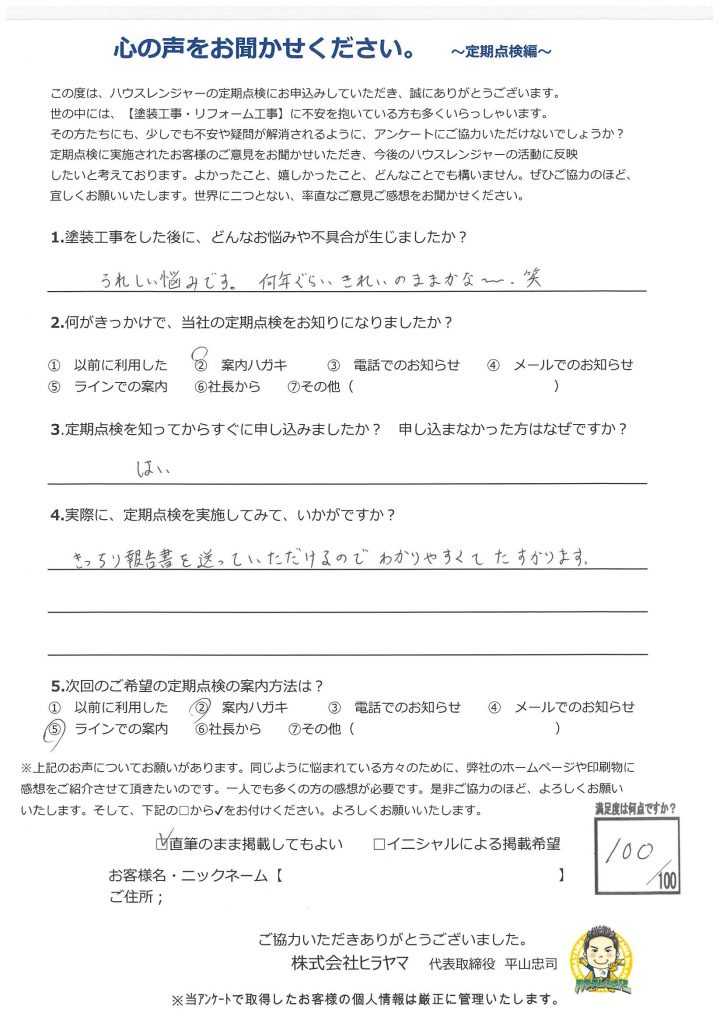 心の声をお聞かせください。 ～定期点検編～
この度は、ハウスレンジャーの定期点検にお申込みしていただき、誠にありがとうございます。
世の中には、【塗装工事・リフォーム工事】に不安を抱いている方も多くいらっしゃいます。
その方たちにも、少しでも不安や疑問が解消されるように、アンケートにご協力いただけないでしょうか？
定期点検に実施されたお客様のご意見をお聞かせいただき、今後のハウスレンジャーの活動に反映
したいと考えております。よかったこと、嬉しかったこと、どんなことでも構いません。ぜひご協力のほど、
宜しくお願いいたします。世界に二つとない、率直なご意見ご感想をお聞かせください。
1.塗装工事をした後に、どんなお悩みや不具合が生じましたか？
うれしい悩みです。 何年ぐらいきれいのままかな〜.笑
2.何がきっかけで、当社の定期点検をお知りになりましたか？
① 以前に利用した ② 案内ハガキ ③ 電話でのお知らせ ④ メールでのお知らせ
⑤ ラインでの案内 ⑥社長から ⑦その他（ ）
3.定期点検を知ってからすぐに申し込みましたか？ 申し込まなかった方はなぜですか？
はい
4.実際に、定期点検を実施してみて、いかがですか？
きっちり報告書を送っていただけるのでわかりやすくてたすかります。
5.次回のご希望の定期点検の案内方法は？
① 以前に利用した ② 案内ハガキ ③ 電話でのお知らせ ④ メールでのお知らせ
⑤ ラインでの案内 ⑥社長から ⑦その他（ ）
※上記のお声についてお願いがあります。同じように悩まれている方々のために、弊社のホームページや印刷物に
感想をご紹介させて頂きたいのです。一人でも多くの方の感想が必要です。是非ご協力のほど、よろしくお願い
いたします。そして、下記の□から✔をお付けください。よろしくお願いいたします。
満足度は何点ですか？
100
/100
☑直筆のまま掲載してもよい □イニシャルによる掲載希望
お客様名・ニックネーム【 】
ご住所；
ご協力いただきありがとうございました。
株式会社ヒラヤマ 代表取締役 平山忠司
※当アンケートで取得したお客様の個人情報は厳正に管理いたします。